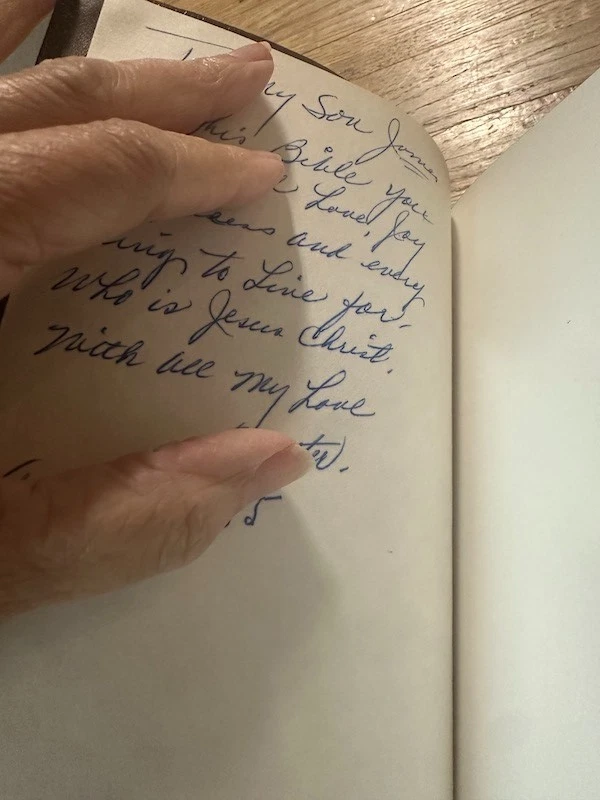 my Son James
this Bible you
Love, Joy
and every
ing to Live for,
Who is Jesus Christ.
With all my Love
5